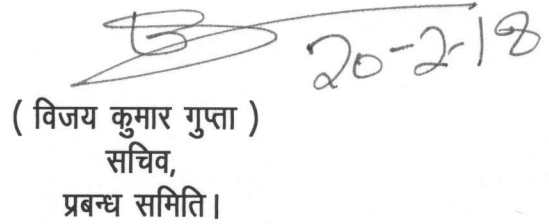 20-2-18
( विजय कुमार गुप्ता )
सचिव,
प्रबन्ध समिति।